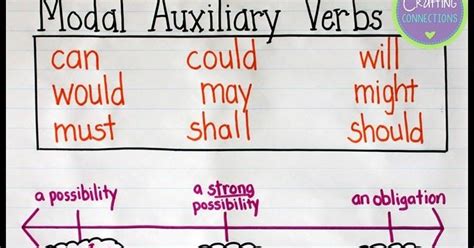 Modal Auxiliary Verbs
Crafting
CONNECTIONS
can could will
would may might
must shall should
a possibility
a strong
possibility
an obligation